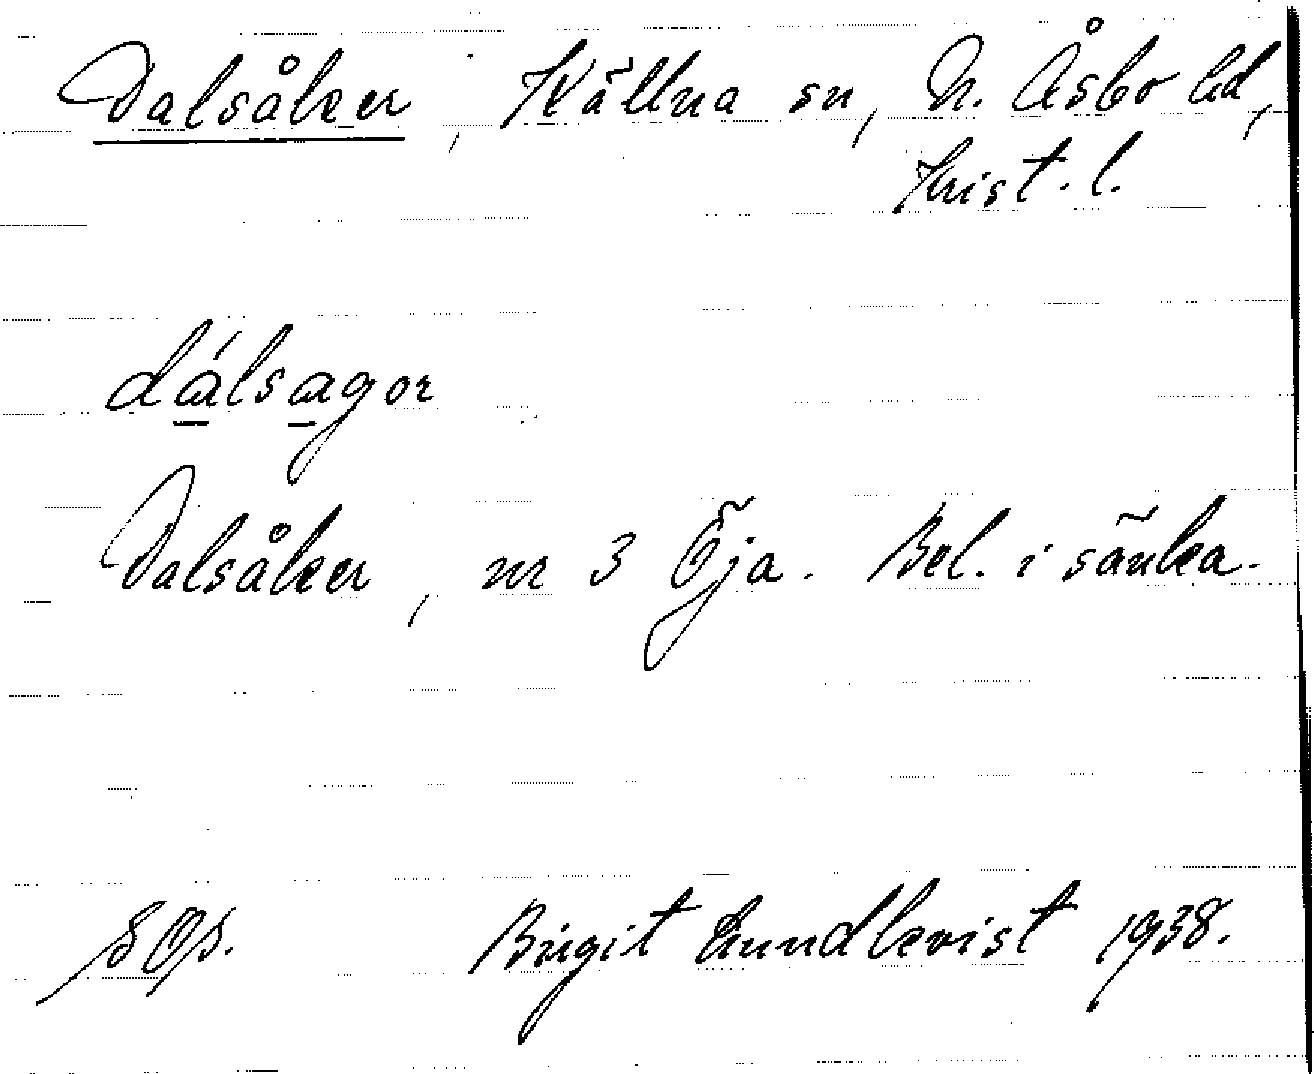 Dalsåker, Källna sn, N. Åsbo hd,
Krist. l.
dálsagor
Dalsåker, nr 3 Öja. Bel. i sänka.
SOs.
Birgit Lundkvist 1938.